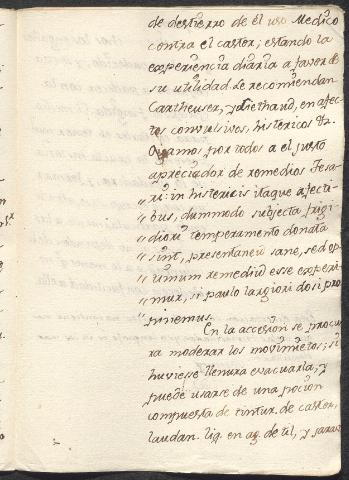 de destierro de él uso Medico
contra el castor; estando la
experiencia diaria a favor de
su utilidad. Le recomiendan
Cartheuser, y Liethaud, en afec-
tos convulsivos, histericos &.
Oygamos por todos a el justo
apreciador de remedios Tesa-
" ri: in histericis itaque afecti-
" bus, dummodo subjecta frigi-
" diori temperamento donata
" sint, presentaneũ sane, sed op-
" timum remediũ esse experi-
" mur, si paulo largiori dosi pro
" pinemus.
En la accesion se procu-
ra moderar los movimiẽtos; si
huviese llenura evacuarla, y
puede usarse de una pocion
compuesta de tintur. de castor,
laudan. liq. en ag. de til, y jarave